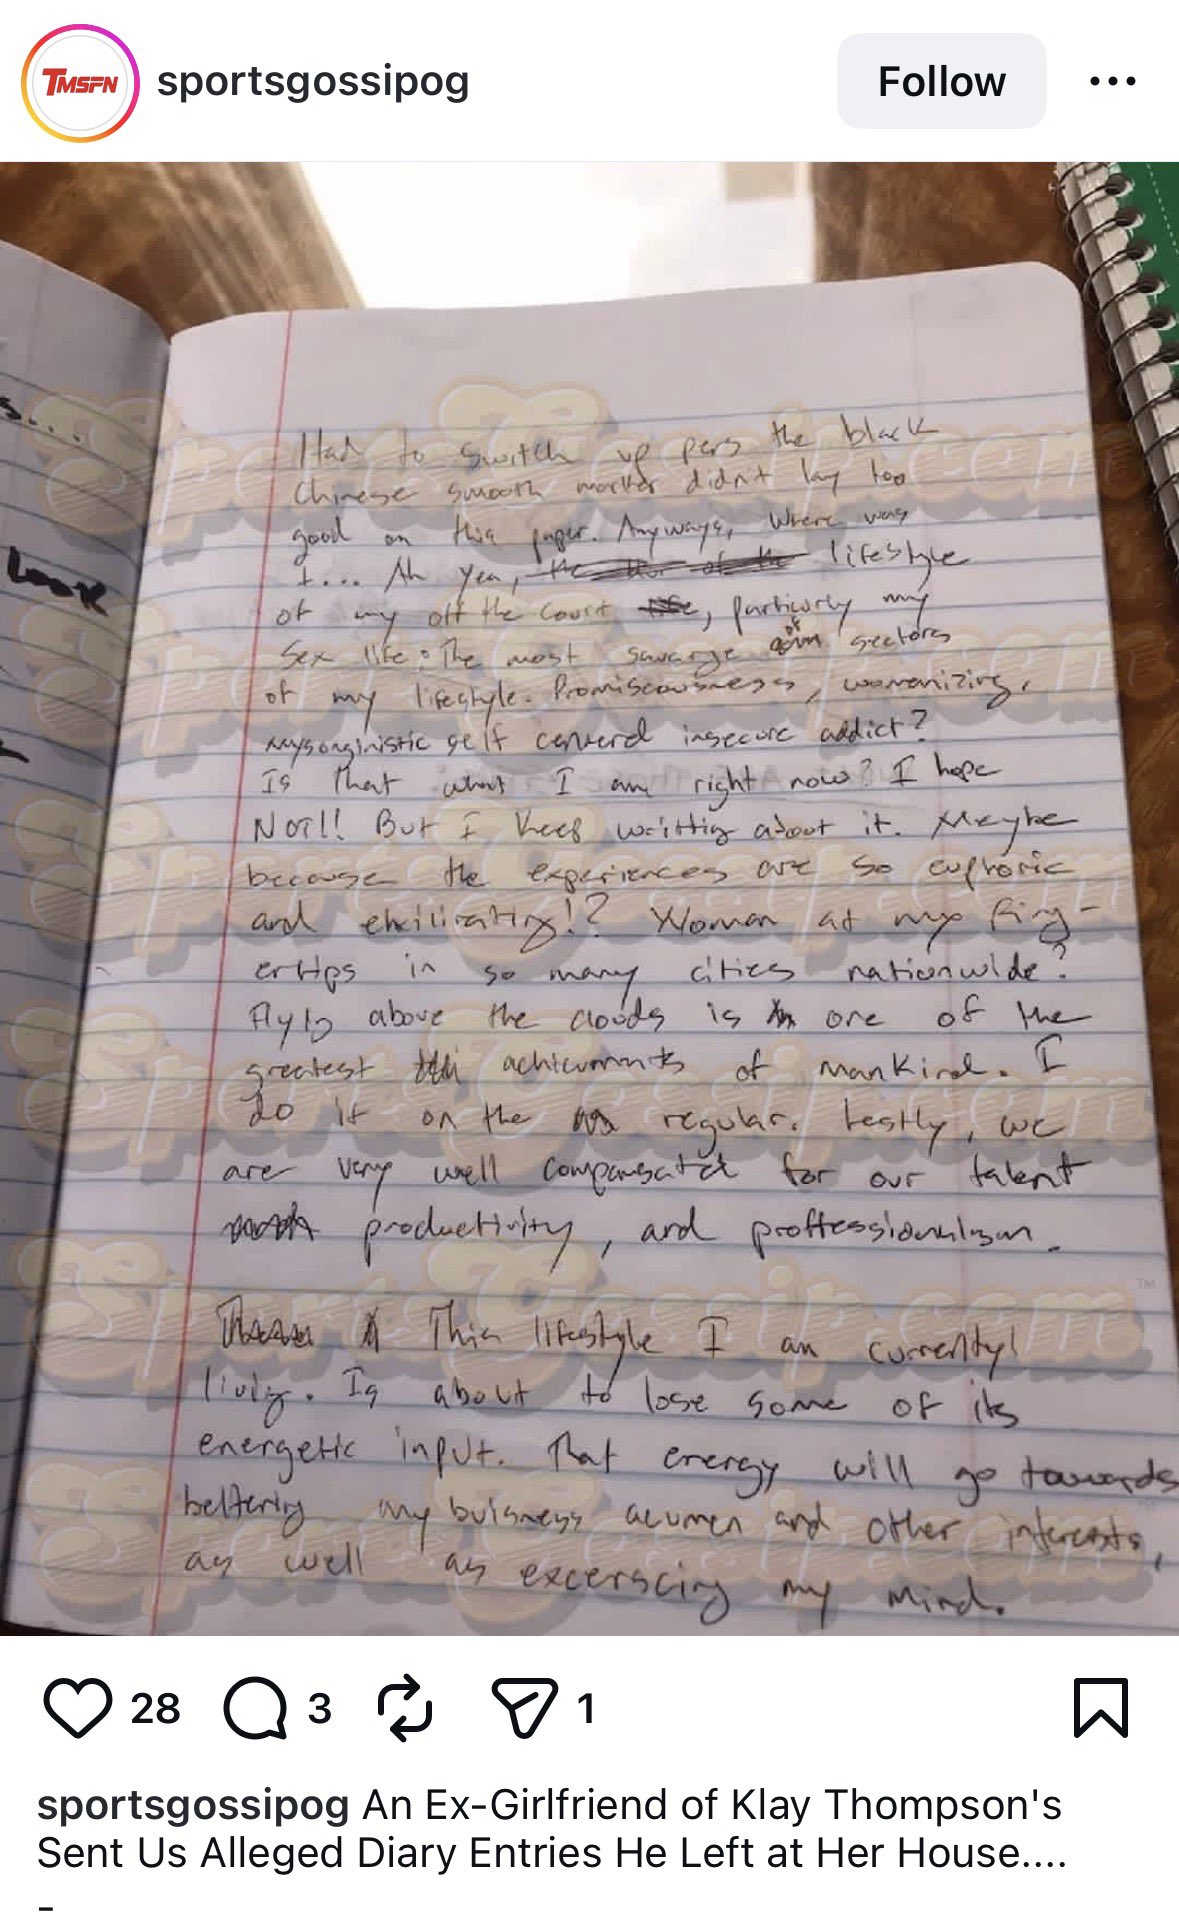 TMSFN
sportsgossipog
Follow
s...
Look
Had to switch up pens the black
Chinese smooth marker didn't lay too
good on this paper. Anyways, Where was
I... Ah yea, lifestyle
of my off the court life, particurly my
sex life. The most savarge of sectors
of my lifestyle. Promiscousness, womanizing,
mysonginistic self centered insecure addict?
Is that what I am right now? I hope
NOT!! But I keep writtig about it. Maybe
because the experiences are so euphoric
and exhilirating!? Women at my fing-
ertips in so many cities nationwide?
Flyig above the clouds is one of the
greatest achievments of mankind. I
do it on the regular. Lastly, we
are very well compensated for our talent
productivity, and proffessionalism.
This lifestyle I am currently
livig. Is about to lose some of its
energetic input. That energy will go towards
bettering my buisness acumen and other interests,
as well as excerscing my mind.
SportsGossip.com
TM
28
3
1
sportsgossipog An Ex-Girlfriend of Klay Thompson's
Sent Us Alleged Diary Entries He Left at Her House....
-